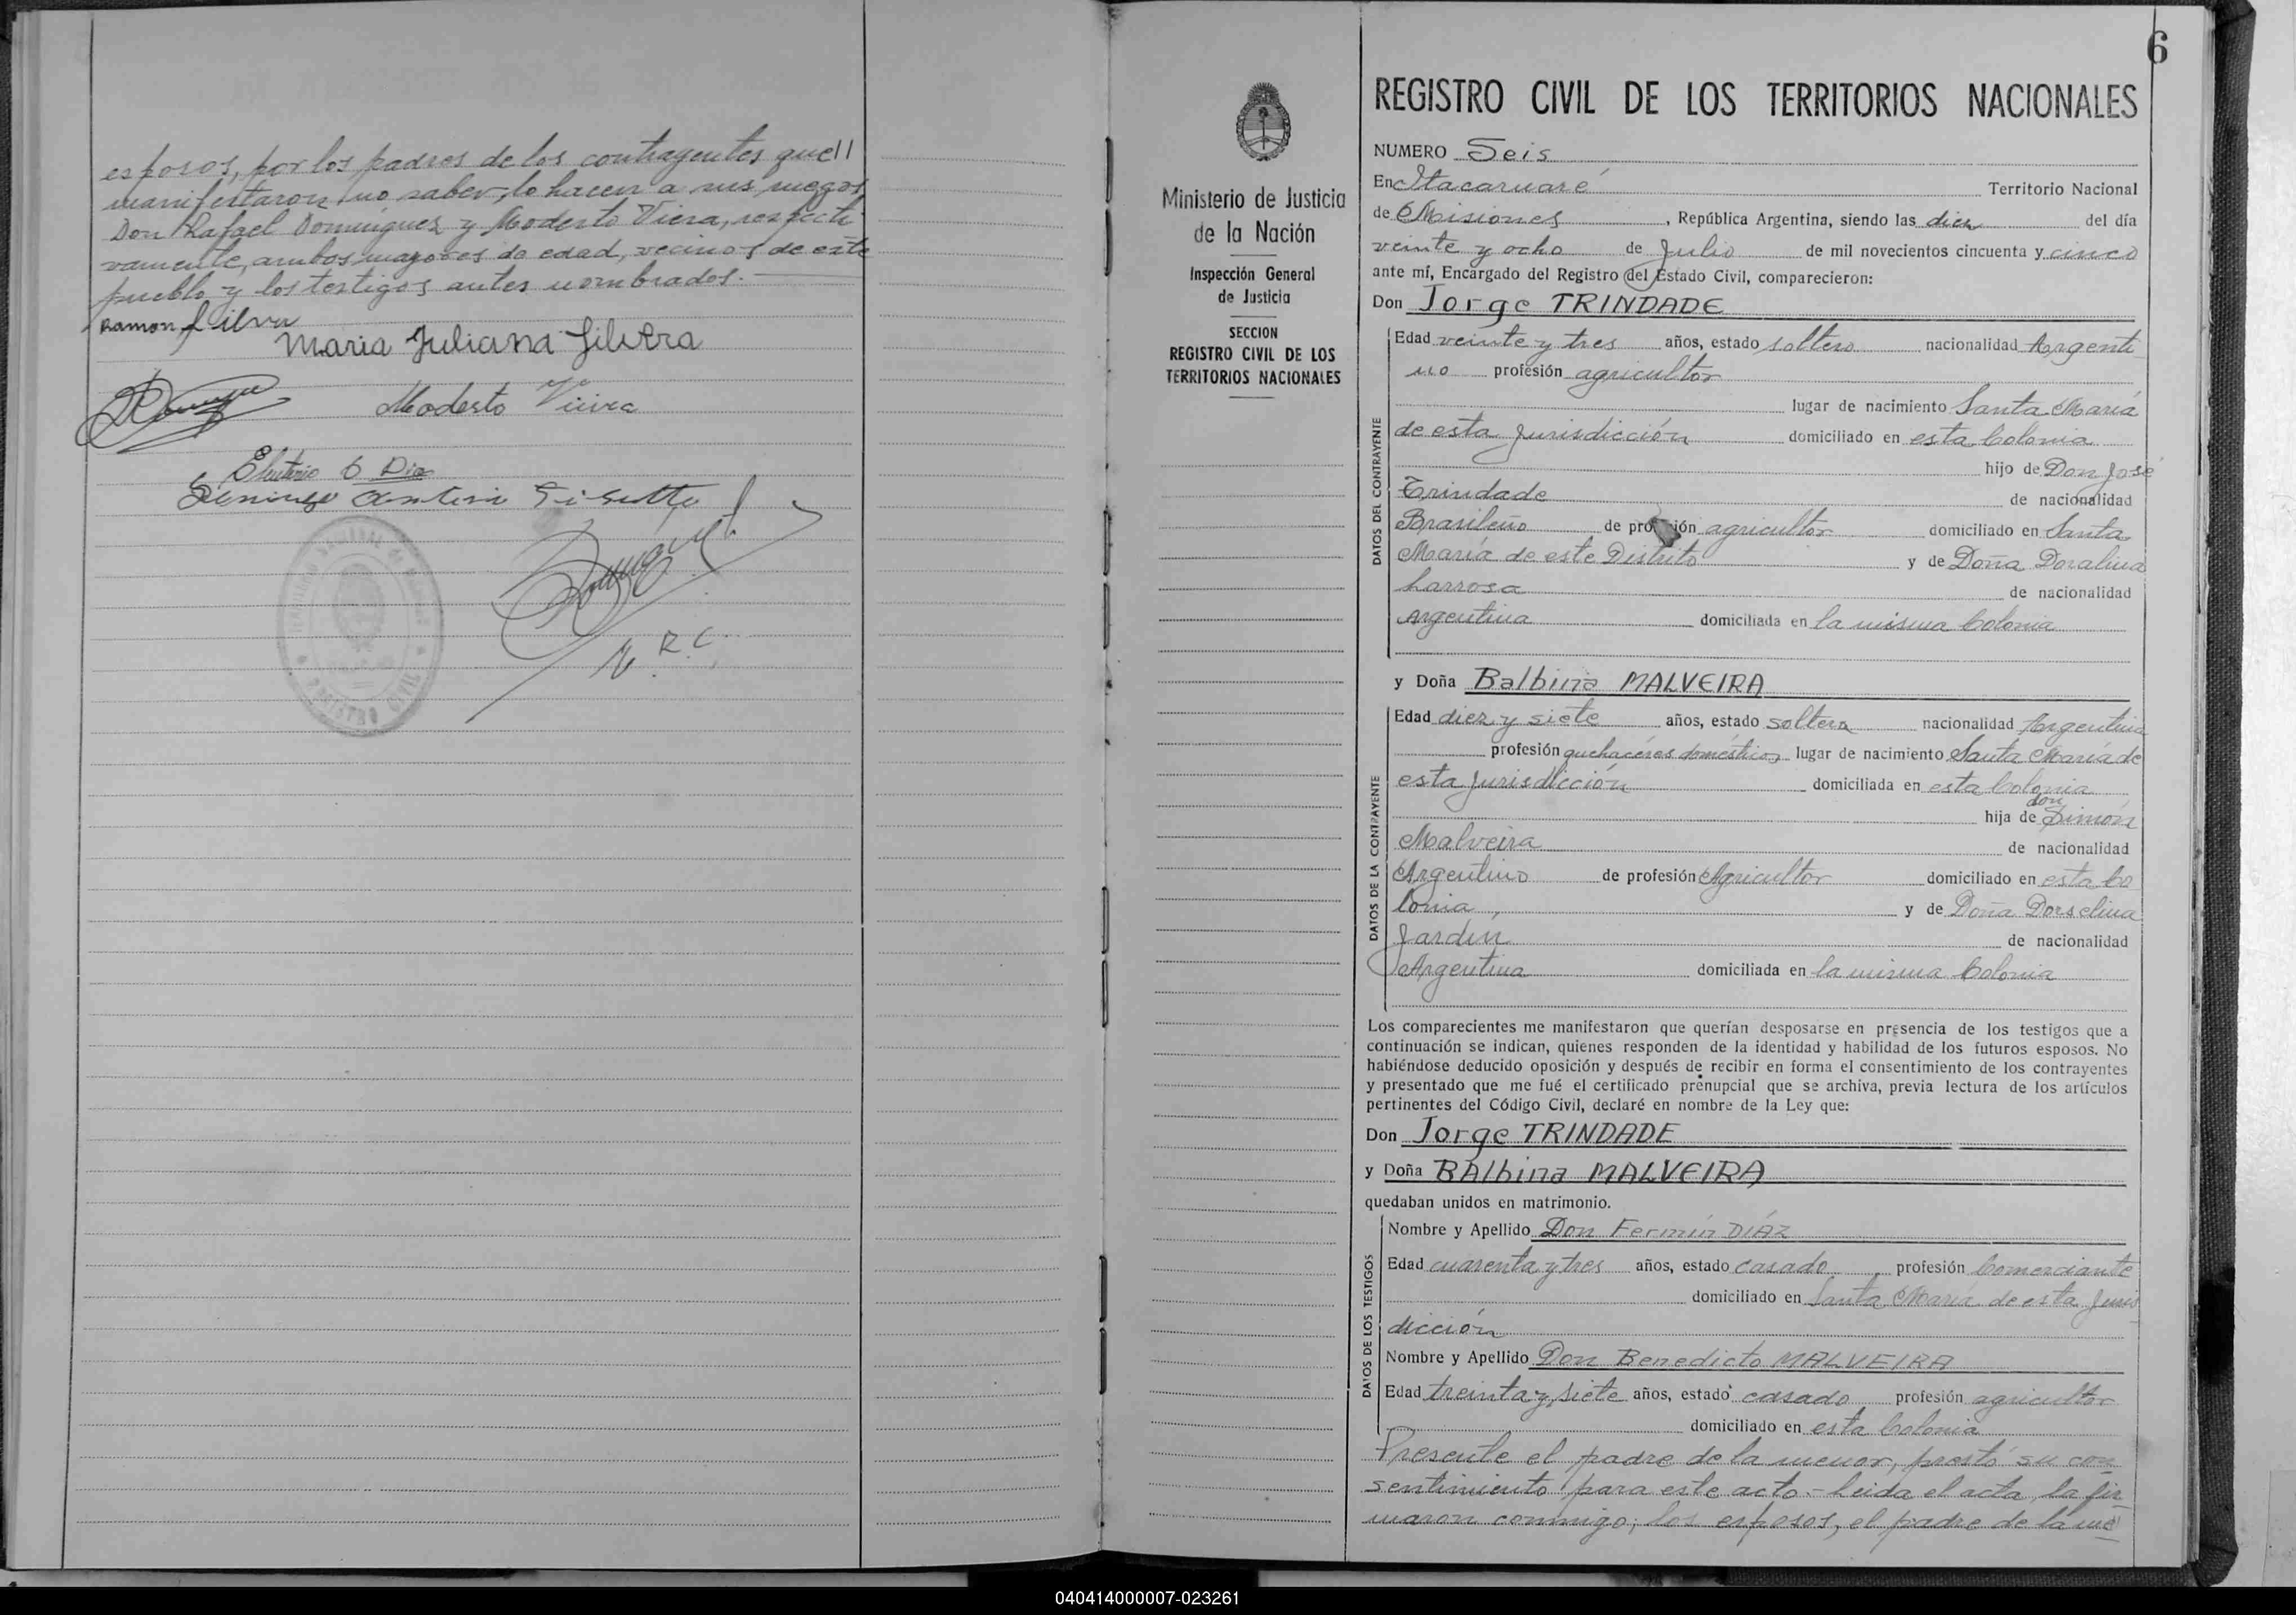 esposos, por los padres de los contrayentes que
manifestaron no saber, lo hacen a sus ruegos
Don Rafael Dominguez y Modesto Viera, respecti
vamente, ambos mayores de edad, vecinos de este
pueblo y los testigos antes nombrados.-
Ramon Silva
Maria Juliana Silvera
Modesto Vieira
REGISTRO CIVIL
6
Ministerio de Justicia
de la Nación
Inspección General
de Justicia
SECCION
REGISTRO CIVIL DE LOS
TERRITORIOS NACIONALES
REGISTRO CIVIL DE LOS TERRITORIOS NACIONALES
NUMERO Seis
En Itacaruaré Territorio Nacional
de Misiones, República Argentina, siendo las diez del día
veinte y ocho de Julio de mil novecientos cincuenta y cinco
ante mí, Encargado del Registro del Estado Civil, comparecieron:
Don Jorge TRINDADE
DATOS DEL CONTRAYENTE
Edad veinte y tres años, estado soltero nacionalidad Argenti
no profesión agricultor
lugar de nacimiento Santa María
de esta Jurisdicción domiciliado en esta Colonia
hijo de Don José
Trindade de nacionalidad
Brasileño de profesión agricultor domiciliado en Santa
María de este Distrito y de Doña Doralina
Larrosa de nacionalidad
Argentina domiciliada en la misma Colonia
y Doña Balbina MALVEIRA
DATOS DE LA CONTRAYENTE
Edad diez y siete años, estado soltera nacionalidad Argentina
profesión quehaceres domésticos lugar de nacimiento Santa María de
esta Jurisdicción domiciliada en esta Colonia
don
hija de Simón
Malveira de nacionalidad
Argentino de profesión Agricultor domiciliado en esta Co
lonia, y de Doña Dorselina
Jardin de nacionalidad
Argentina domiciliada en la misma Colonia
Los comparecientes me manifestaron que querían desposarse en presencia de los testigos que a
continuación se indican, quienes responden de la identidad y habilidad de los futuros esposos. No
habiéndose deducido oposición y después de recibir en forma el consentimiento de los contrayentes
y presentado que me fué el certificado prenupcial que se archiva, previa lectura de los artículos
pertinentes del Código Civil, declaré en nombre de la Ley que:
Don Jorge TRINDADE
y Doña BAlbina MALVEIRA
quedaban unidos en matrimonio.
DATOS DE LOS TESTIGOS
Nombre y Apellido Don Fermín DIAZ
Edad cuarenta y tres años, estado casado, profesión Comerciante
domiciliado en Santa María de esta Juris
dicción
Nombre y Apellido Don Benedicto MALVEIRA
Edad treinta y siete años, estado casado profesión agricultor
domiciliado en esta Colonia
Presente el padre de la menor, prestó su con
sentimiento para este acto.- Leida el acta, la fir
maron conmigo, los esposos, el padre de la me
040414000007-023261